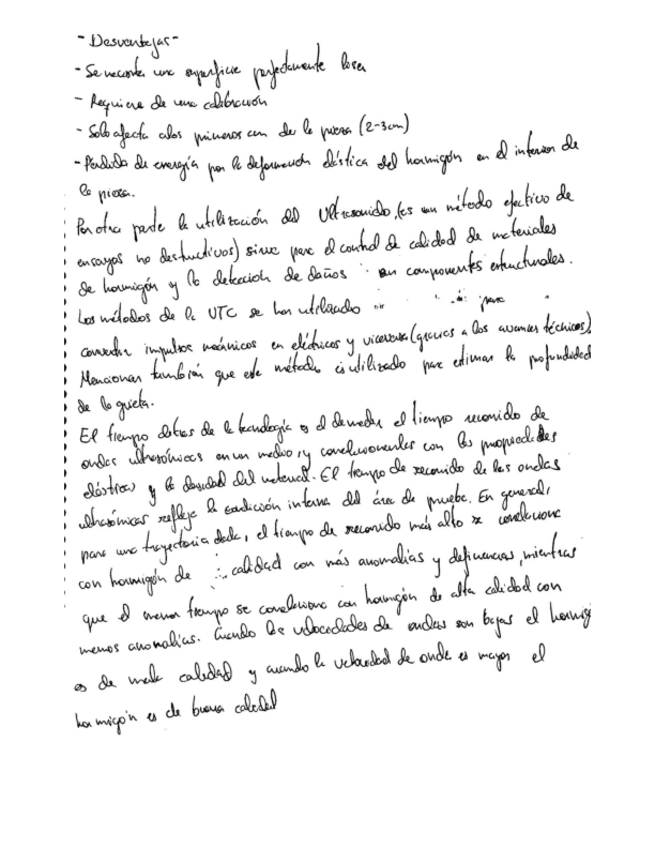 - Desventajas -
- Se necesita una superficie perfectamente lisa
- Requiere de una calibración
- Solo afecta a los primeros cm de la pieza (2-3cm)
- Perdida de energía por la deformación elástica del hormigón en el interior de
la pieza.
Por otra parte la utilización del Ultrasonido, (es un método efectivo de
ensayos no destructivos) sirve para el control de calidad de materiales
de hormigón y la detección de daños en componentes estructurales.
Los métodos de la UTC se han utilizado para
convertir impulsos mecánicos en eléctricos y viceversa (gracias a los avances técnicos)
Mencionar también que este método es utilizado para estimar la profundidad
de la grieta.
El tiempo detras de la tecnología es el de medir el tiempo recorrido de
ondas ultrasónicas en un medio, y correlacionarlas con las propiedades
elásticas y la densidad del material. El tiempo de recorrido de las ondas
ultrasónicas refleja la condición interna del área de prueba. En general,
para una trayectoria dada, el tiempo de recorrido más alto se correlaciona
con hormigón de calidad con más anomalías y deficiencias, mientras
que el menor tiempo se correlaciona con hormigón de alta calidad con
menos anomalías. Cuando las velocidades de ondas son bajas el hormig
es de mala calidad y cuando la velocidad de onda es mayor el
hormigón es de buena calidad